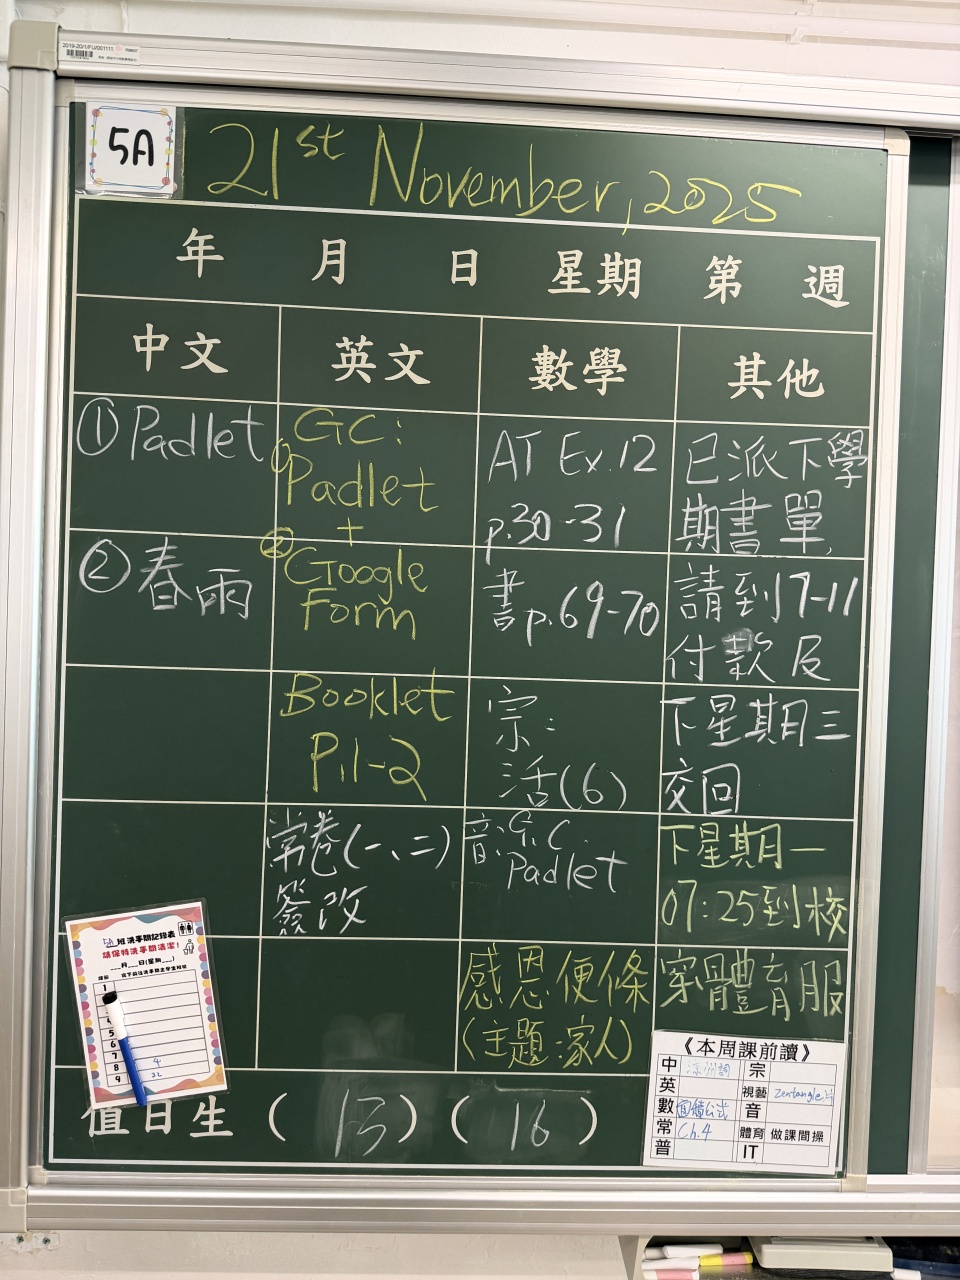 2019-20/1/FU/001111
5A
21st November, 2025
年 月 日 星期 第 週
中文 英文 數學 其他
① Padlet
② 春雨
GC:
① Padlet
+
② Google
Form
Booklet
P.1-2
常卷(一、二)
簽改
AT Ex.12
p.30-31
書p.69-70
宗:
活(6)
音: G.C.
Padlet
感恩便條
(主題:家人)
已派下學
期書單,
請到17-11
付款及
下星期三
交回
下星期一
07:25到校
穿體育服
5A 班洗手間記錄表
請保持洗手間清潔!
__月__日(星期__)
1
4
5
6
7
8 4
9 22
值日生 (13) (16)
《本周課前讀》
中 涼州詞 宗
英 視藝 Zentangle
數 音
常 Ch.4 體育 做課間操
普 IT